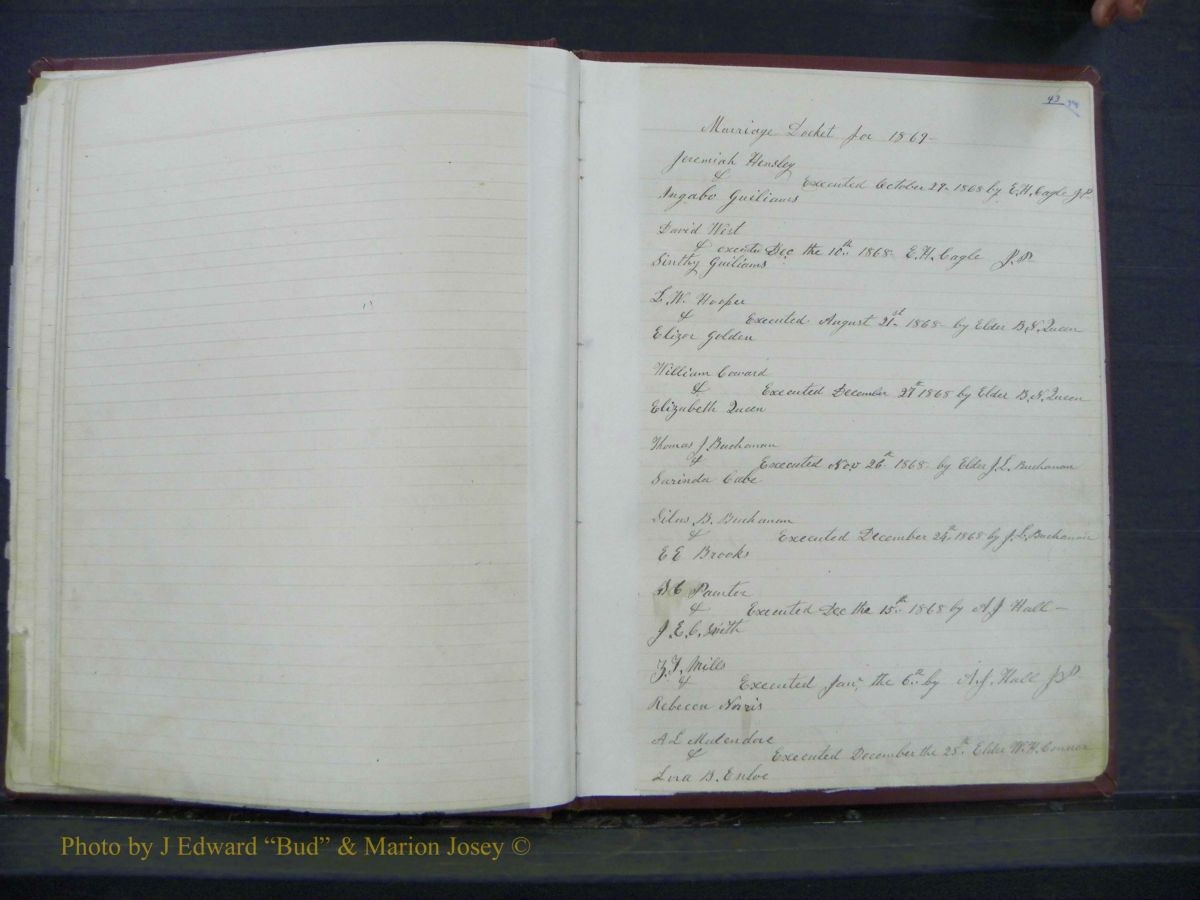 43
Marriage Docket for 1869-
Jeremiah Hensley
& Executed October 29. 1868 by E.H. Cagle J.P.
Ingabo Guiliams
David West
& Dec the 10th 1868 E.H. Cagle J.P.
Sinthy Guiliams
L.W. Hooper
& Executed August 21st 1868 by Elder B.N. Queen
Elizor Golden
William Coward
& Executed December 27th 1868 by Elder B.N. Queen
Elizabeth Queen
Thomas J Buchanan
& Executed Nov 26th 1868 by Elder J.L. Buchanan
Surinda Cabe
Silas B. Buchanan
& Executed December 24th 1868 by J.L. Buchanan
E E Brooks
Painter
& Executed Dec the 15th 1868 by A.J Hall -
J.E.C. Smith
Mills
& Executed Jan, the 6th by A.J. Hall J P
Rebecca Norris
A L
& Executed December the 25th Elder W.H. Connor
B. Enloe
Photo by J Edward “Bud” & Marion Josey ©